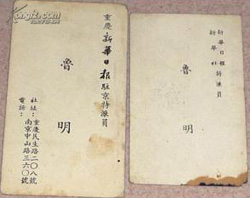 重慶新華日報駐京特派員
魯明
社址：重慶民生路二〇八號
南京中山路三六〇號
電話：
新華日報特派員
新華社
魯明